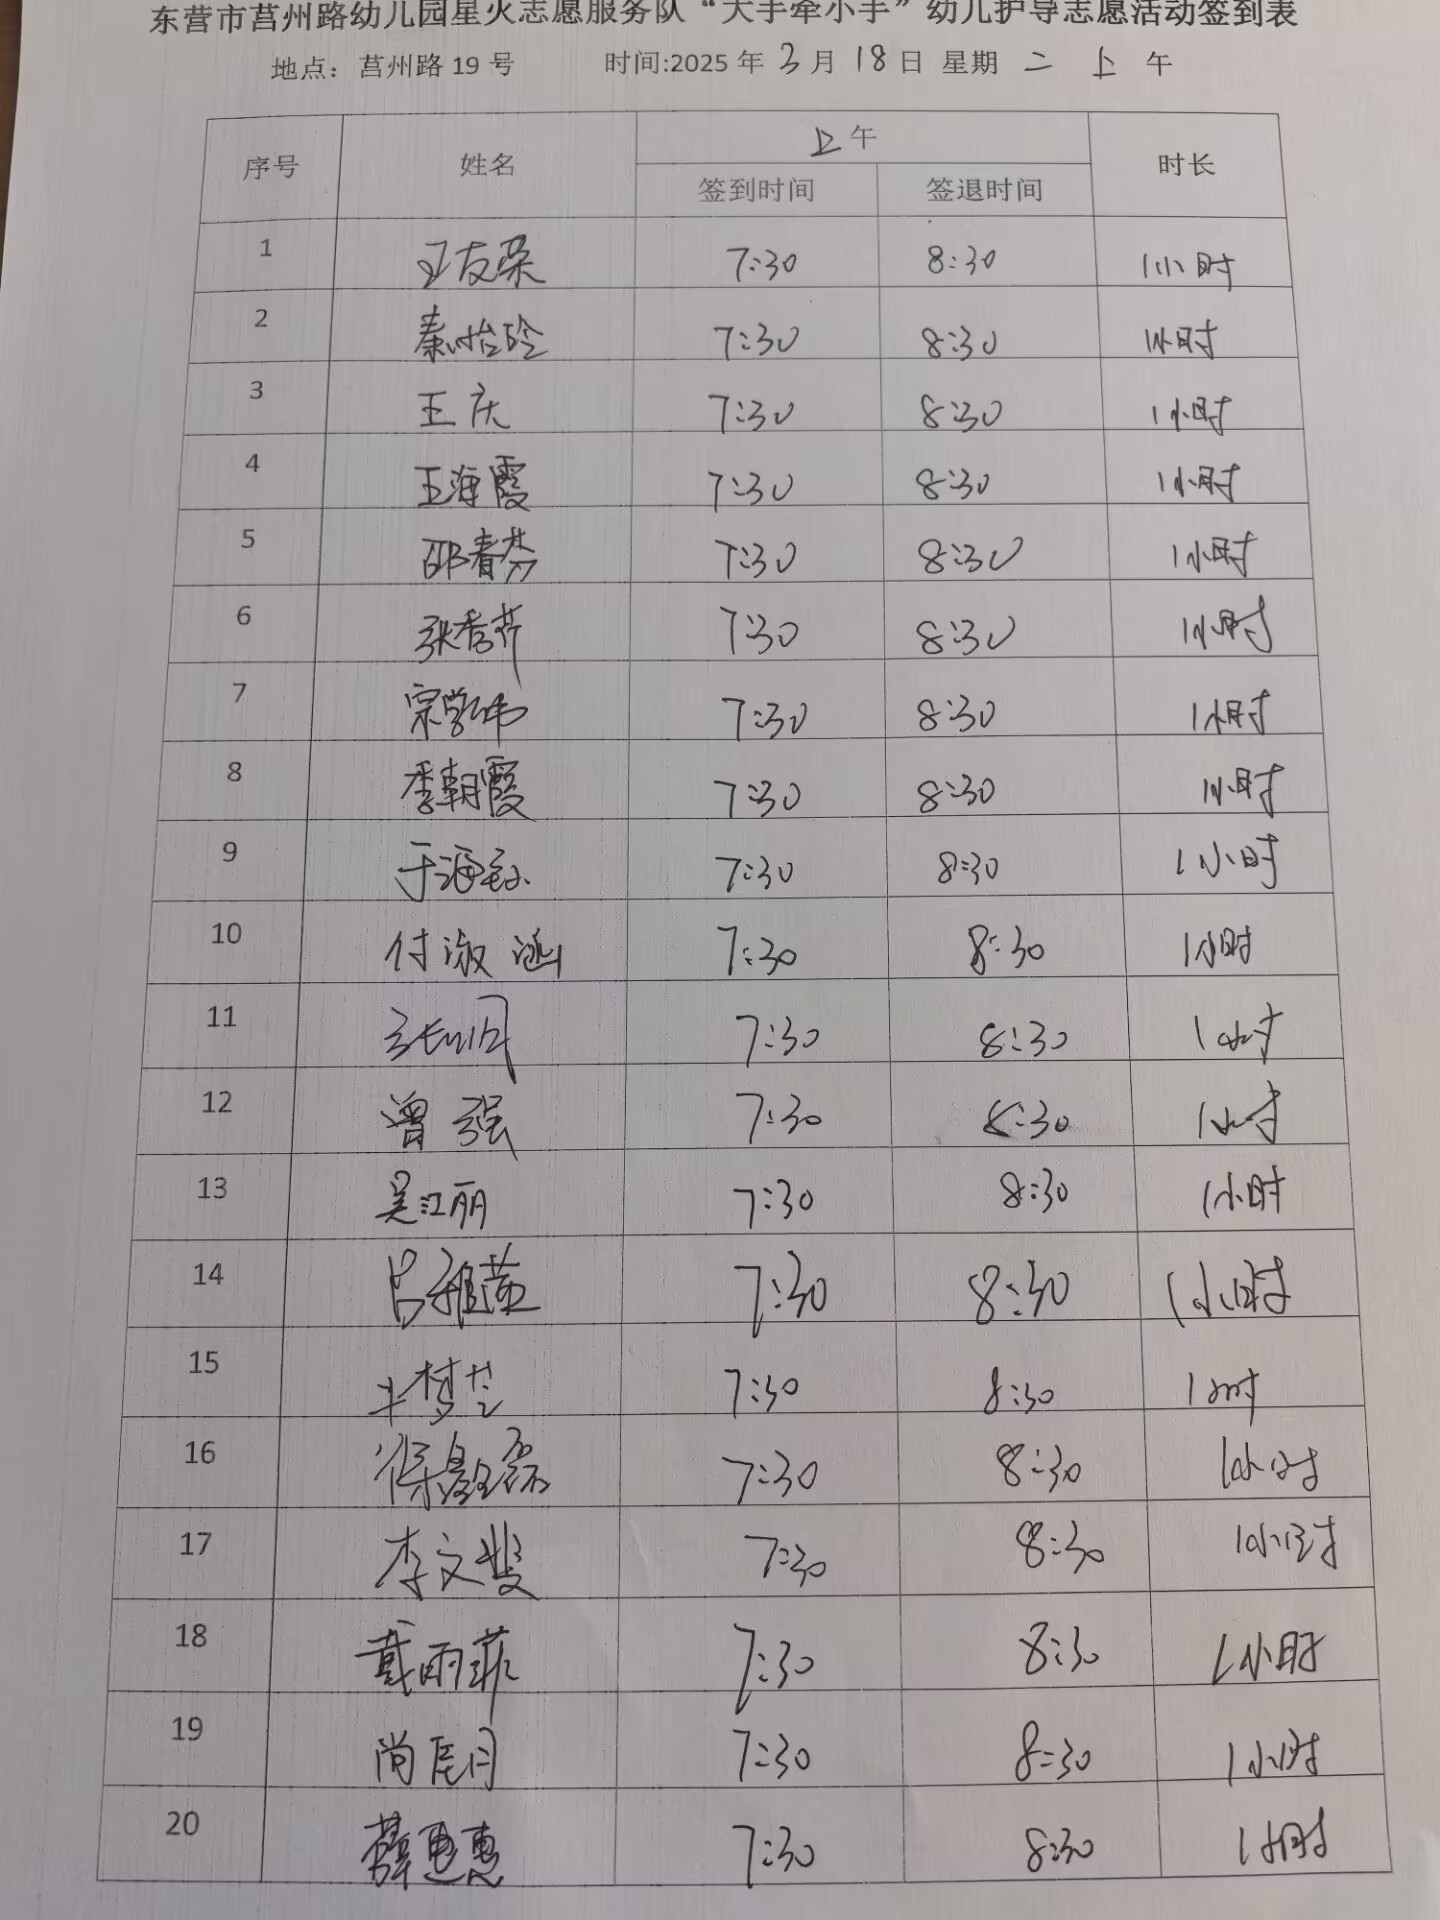 东营市莒州路幼儿园星火志愿服务队“大手牵小手”幼儿护导志愿活动签到表
地点：莒州路 19 号 时间:2025 年 3 月 18 日 星期 二 上 午
序号 姓名 上午 时长
签到时间 签退时间
1 王友荣 7:30 8:30 1小时
2 秦怡玲 7:30 8:30 1小时
3 王庆 7:30 8:30 1小时
4 王海霞 7:30 8:30 1小时
5 邵春芬 7:30 8:30 1小时
6 张秀芹 7:30 8:30 1小时
7 宗学伟 7:30 8:30 1小时
8 季朝霞 7:30 8:30 1小时
9 于海 7:30 8:30 1小时
10 付淑涵 7:30 8:30 1小时
11 7:30 8:30 1小时
12 曾强 7:30 8:30 1小时
13 吴江丽 7:30 8:30 1小时
14 吕雅萱 7:30 8:30 1小时
15 梦芝 7:30 8:30 1小时
16 徐磊 7:30 8:30 1小时
17 李文斐 7:30 8:30 1小时
18 戴雨菲 7:30 8:30 1小时
19 尚辰月 7:30 8:30 1小时
20 薛惠惠 7:30 8:30 1小时